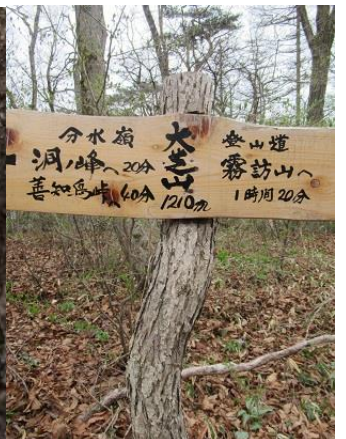 分水嶺
洞ノ峰へ20分
善知鳥峠 40分
大芝山
1210m
登山道
霧訪山へ
1時間20分